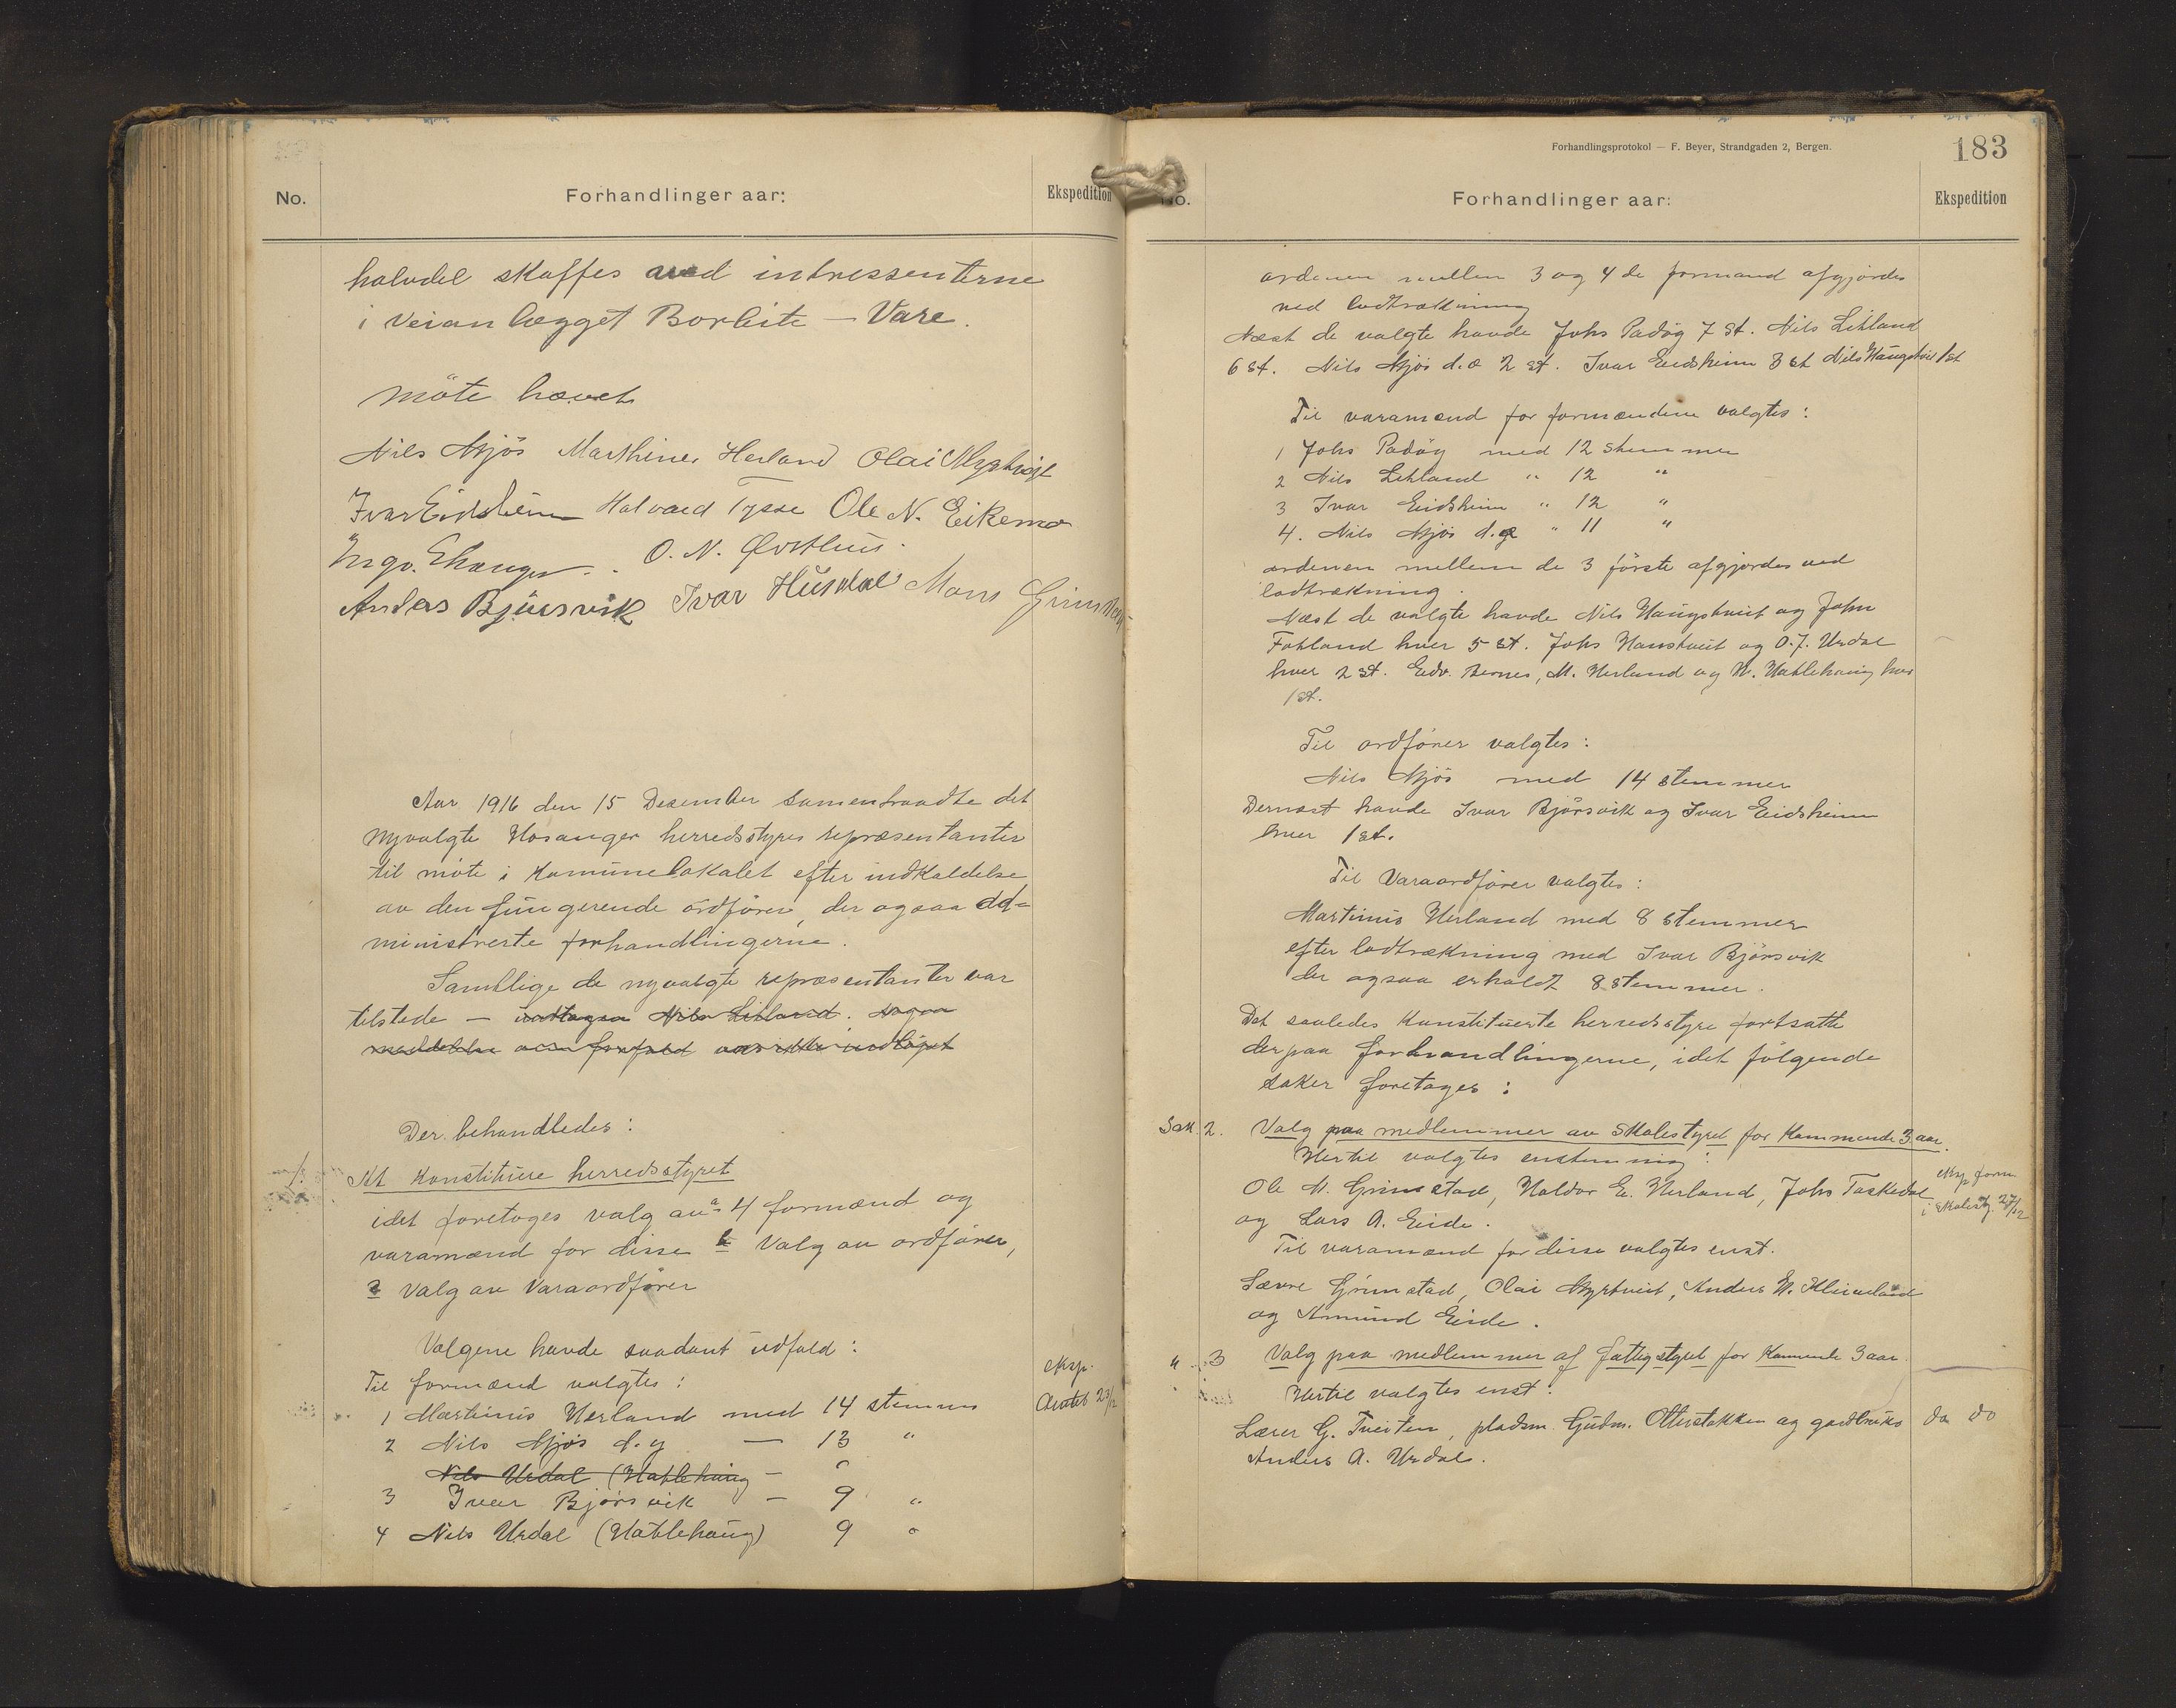 No.
Forhandlinger aar:
Ekspedition
halvdel skaffes ved intressenterne
i veianlægget Borleite - Vare.
Møte hævet
Nils Mjøs Marthines Herland Olai Myrtveit
Ivar Eidsheim Halvard Tysse Ole N. Eikemo
Ingv. Ehanger. O. N. Øvsthus.
Anders Bjørsvik Ivar Husdal Mons Grimstad
Aar 1916 den 15 Desember samentraadte det
nyvalgte Hosanger herredsstyres repræsentanter
til møte i Komunelokalet efter indkaldelse
av den fungerende ordfører, der ogsaa ad-
ministrerte forhandlingerne.
Samtlige de nyvalgte repræsentanter var
tilstede - undtagen Nils Litland. Nogen
meddelelse om forfald var ikke indløpet
Der behandledes:
1. At konstituere herredsstyret
idet foretoges valg av a 4 formænd og
varamænd for disse b Valg av ordfører,
3 Valg av Varaordfører
Valgene havde saadant udfald:
Til formænd valgtes:
eksp.
Amtet 23/12
1 Martinus Herland med 14 stemmer
2 Nils Mjøs d. y — 13 "
Nils Urdal (Hatlehaug —
3 Ivar Bjørsvik — 9 "
4 Nils Urdal (Hatlehaug) 9 "
Forhandlingsprotokol — F. Beyer, Strandgaden 2, Bergen.
183
No.
Forhandlinger aar:
Ekspedition
ordenen mellem 3 og 4 de formand afgjordes
ved lodtrækning
Næst de valgte havde Johs Padøy 7 st. Nils Litland
6 st. Nils Mjøs d. æ 2 st. Ivar Eidsheim 3 st Nils Haugstveit 1 st
Til varamænd for formændene valgtes:
1 Johs Padøy med 12 stemmer
2 Nils Litland " 12 "
3 Ivar Eidsheim " 12 "
4. Nils Mjøs d. æ " 11 "
ordenen mellem de 3 første afgjordes ved
lodtrækning.
Næst de valgte havde Nils Haugstveit og John
Fotland hver 5 st. Johs Hanstveit og O. J. Urdal
hver 2 st. Edv. Bernes, M. Herland og N. Hatlehaug hver
1 st.
Til ordfører valgtes:
Nils Mjøs med 14 stemmer
Dernæst havde Ivar Bjørsvik og Ivar Eidsheim
hver 1 st.
Til Varaordfører valgtes:
Martinus Herland med 8 stemmer
efter lodtrækning med Ivar Bjørsvik
der ogsaa erholdt 8 stemmer.
Det saaledes konstituerte herredsstyre fortsatte
derpaa forhandlingerne, idet følgende
saker foretoges:
Sak. 2. Valg paa medlemmer av skolestyret for kommende 3 aar.
Hertil valgtes enstemmig:
Ole M. Grimstad, Haldor E. Herland, Johs Taskedal
og Lars A. Eide.
eksp form
i skolest. 27/12
Til varamænd for disse valgtes enst.
Lærer Grimstad, Olai Myrtveit, Anders N. Kleiveland
og Amund Eide.
" 3 Valg paa medlemmer af fattigstyret for kommende 3 aar.
Hertil valgtes enst:
Lærer G. Tveiten, pladsm. Gudm. Otterstakken og gardbruker
Anders A. Urdal.
do do